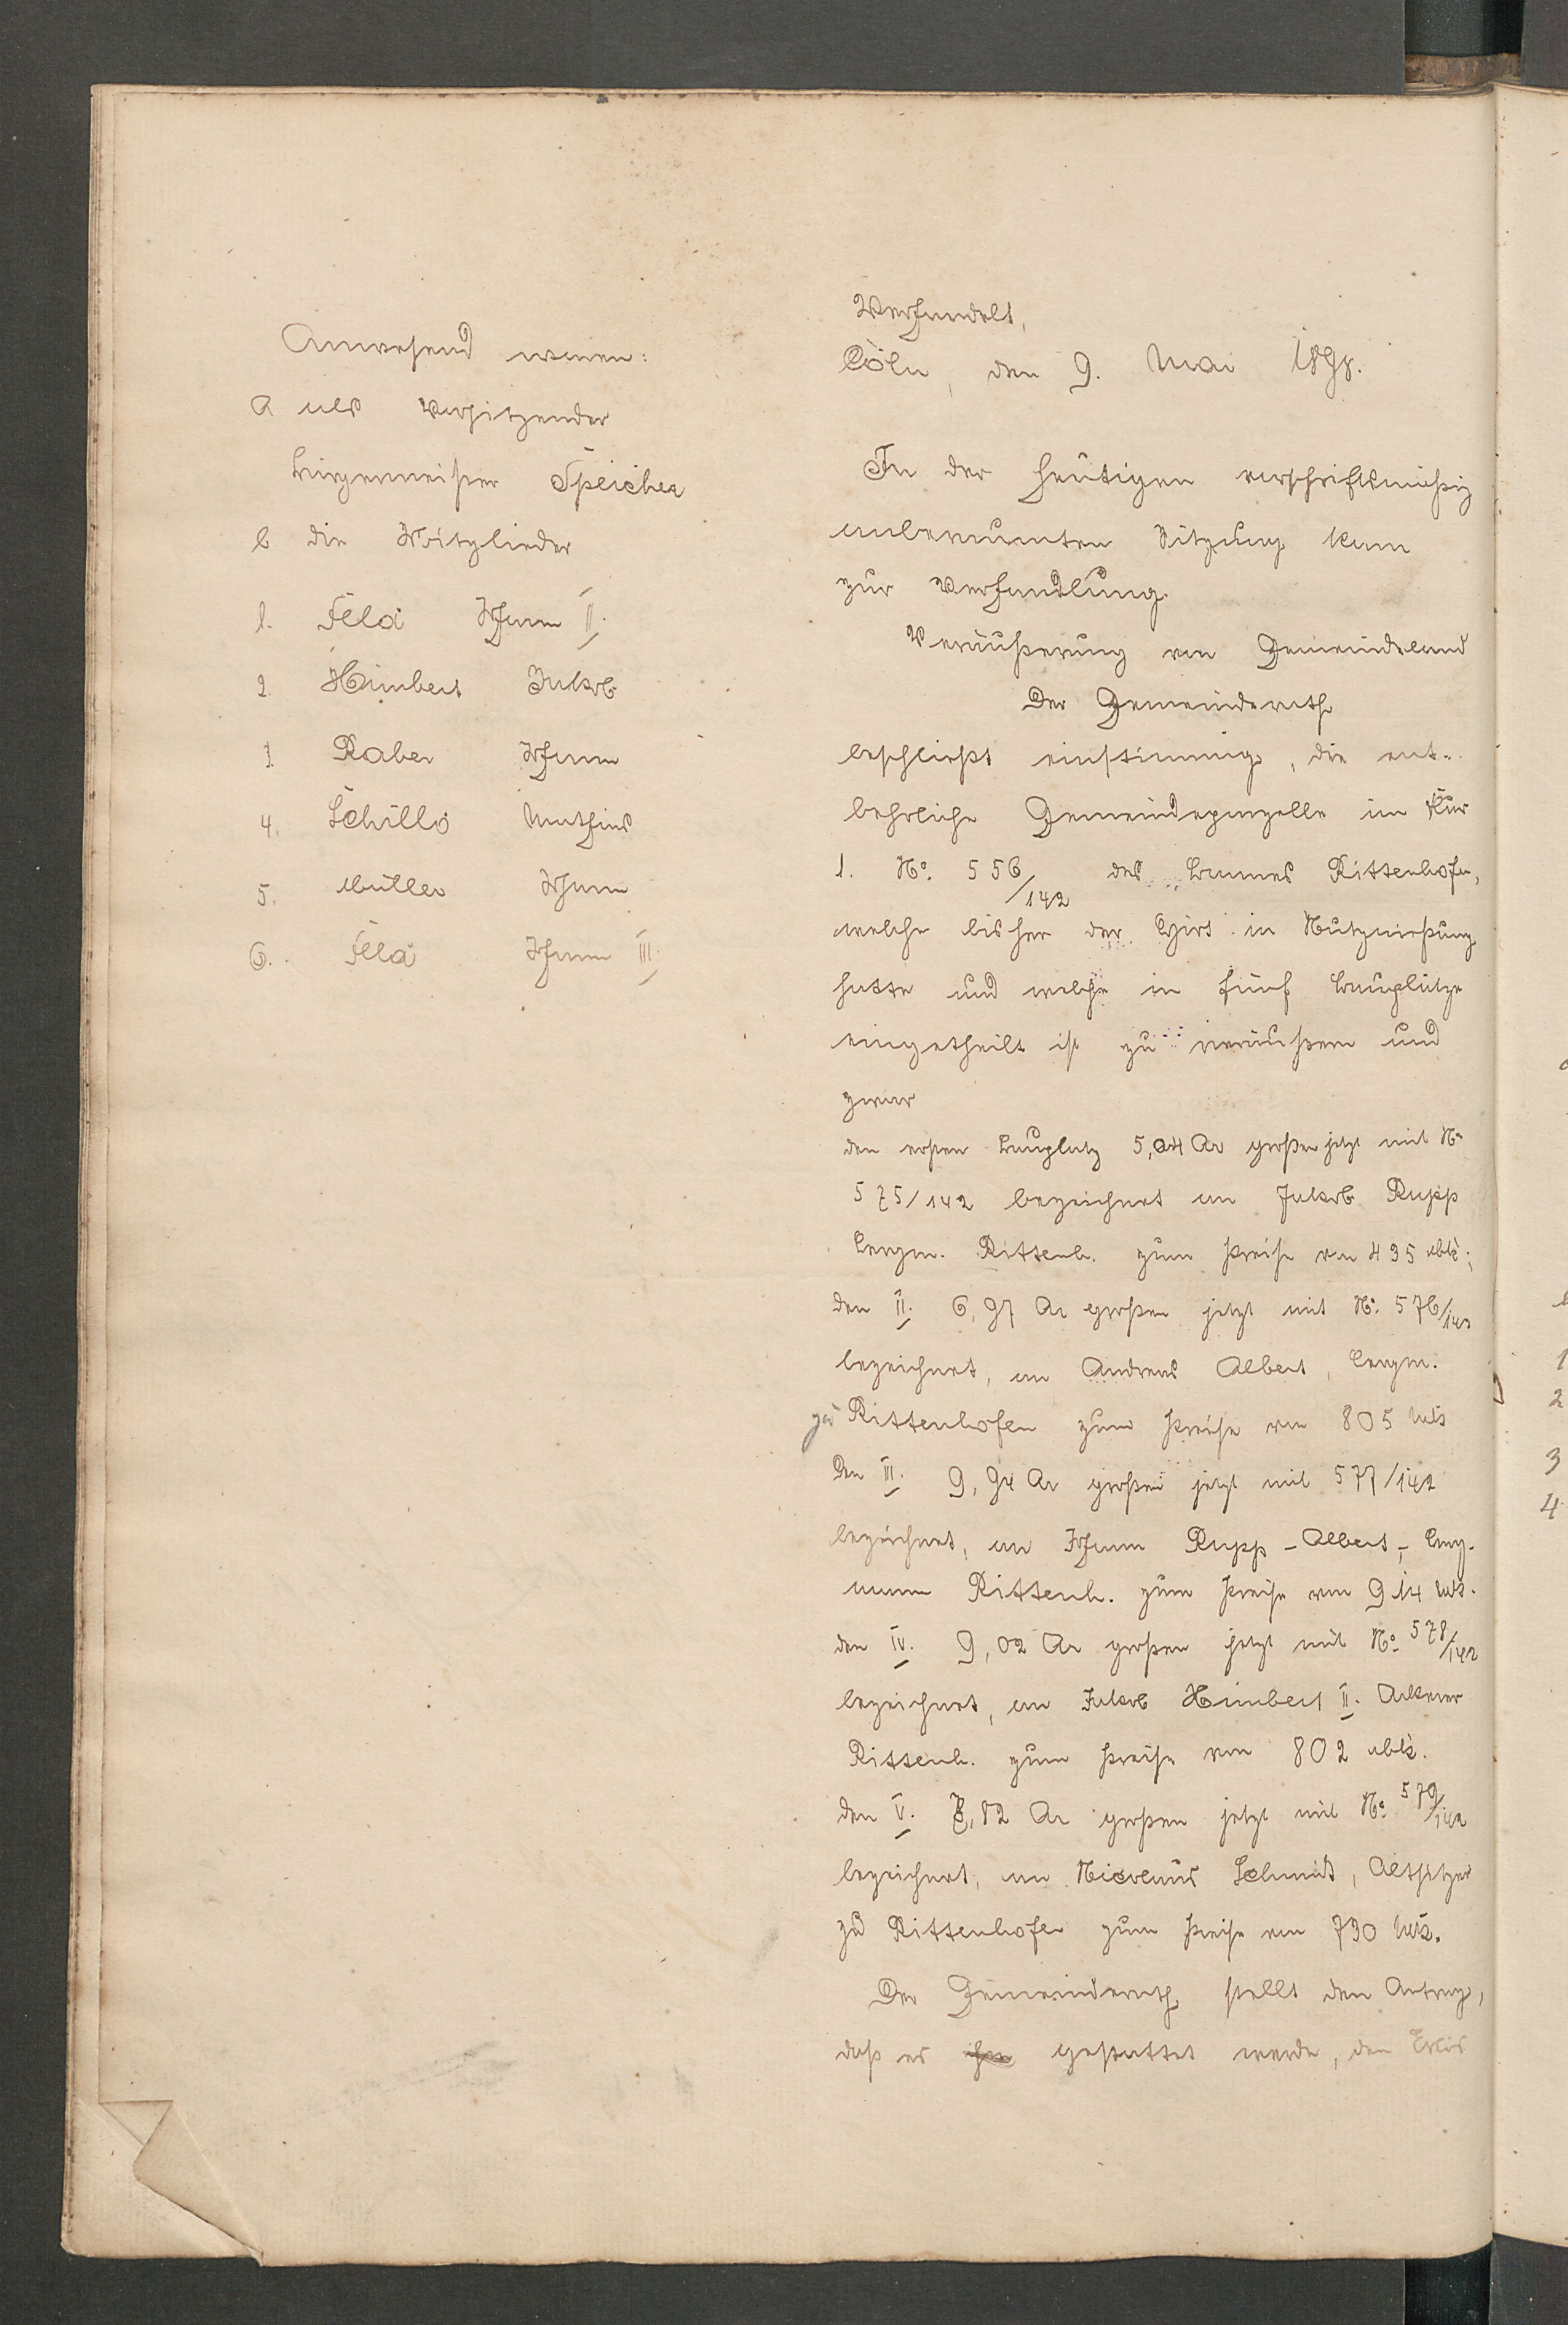 Anwesend waren:
a als Vorsitzender
Bürgermeister Speicher
b die Mitglieder
1. Feld Johann II.
2. Himbert Jakob
3. Raber Johann
4. Schillo Mathias
5. Müller Johann
6. Feld Johann III.
Verhandelt,
Cöln, den 9. Mai 1898.
In der heutigen vorschriftsmäßig
anberaumten Sitzung kam
zur Verhandlung.
Veräußerung von Gemeindeland
Der Gemeinderath
beschließt einstimmig, die ent-
behrliche Gemeindeparzelle im Flur
1. No. 556/142 des Bannes Rittenhofen,
welche bisher der Hirt in Nutznießung
hatte und welche in fünf Bauplätze
eingetheilt ist zu veräußern und
zwar
den ersten Bauplatz 5,04 Ar großen jetzt mit No
575/142 bezeichnet an Jakob Rupp
Bergm. Rittenh. zum Preise von 435 Mk;
den II. 6,97 Ar großen jetzt mit No. 576/142
bezeichnet, an Andreas Albert, Bergm.
zu Rittenhofen zum Preise von 805 Mk
Den III. 9,94 Ar großen jetzt mit 577/142
bezeichnet, an Johann Rupp-Albert, Berg-
mann Rittenh. zum Preise von 914 Mk.
den IV. 9,02 Ar großen jetzt mit No. 578/142
bezeichnet, an Jakob Himbert II. Ackerer
Rittenh. zum Preise von 802 Mk.
den V. 8,82 Ar großen jetzt mit No. 579/142
bezeichnet, an Nicolaus Schmidt, Altsitzer
zu Rittenhofen zum Preise von 790 Mk.
Der Gemeinderath stellt den Antrag,
daß es gestattet werde, den Erlös
1
2
3
4